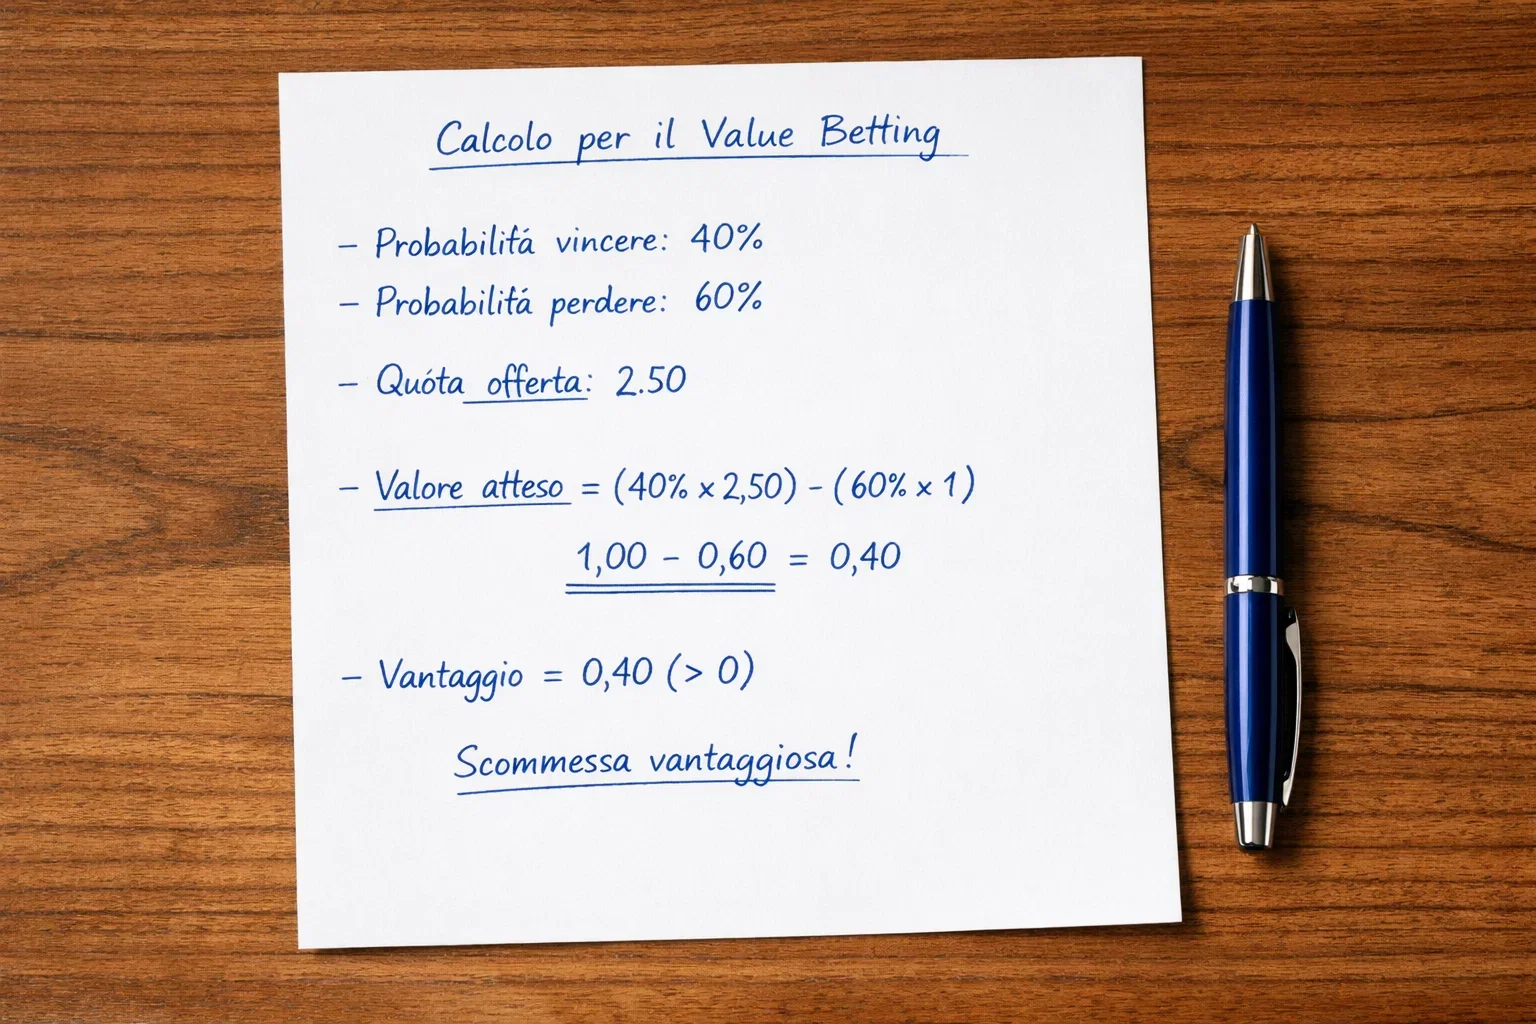 Calcolo per il Value Betting
– Probabilitá vincere: 40%
– Probabilitá perdere: 60%
– Quóta offerta: 2.50
– Valore atteso = (40% x 2,50) - (60% x 1)
1,00 - 0,60 = 0,40
– Vantaggio = 0,40 (> 0)
Scommessa vantaggiosa!